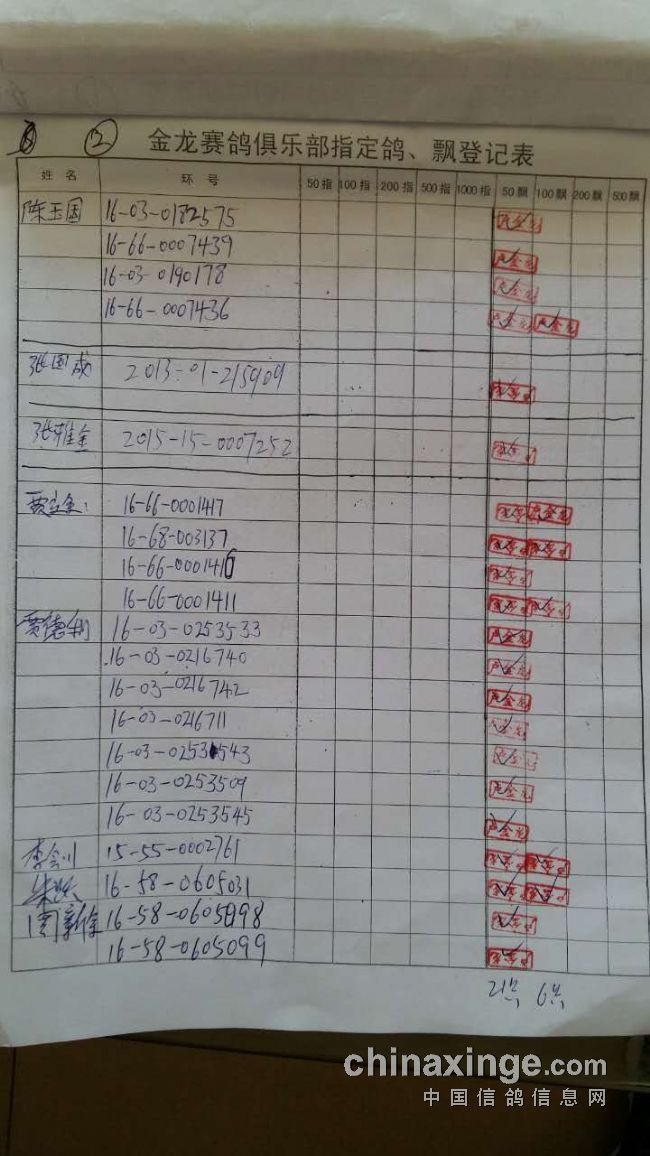 ②
金龙赛鸽俱乐部指定鸽、飘登记表
姓名 环号 50指 100指 200指 500指 1000指 50飘 100飘 200飘 500飘
陈玉国 16-03-0182575
16-66-0007439
16-03-0190178
16-66-0007436
张国成 2013-01-215909
张雅金 2015-15-0007252
16-66-0001417
16-68-003137
16-66-0001416
16-66-0001411
贾德利 16-03-0253533
16-03-0216740
16-03-0216742
16-03-0216711
16-03-0253543
16-03-0253509
16-03-0253545
李会川 15-55-0002761
16-58-0605031
周新金 16-58-0605098
16-58-0605099
chinaxinge.com
中国信鸽信息网